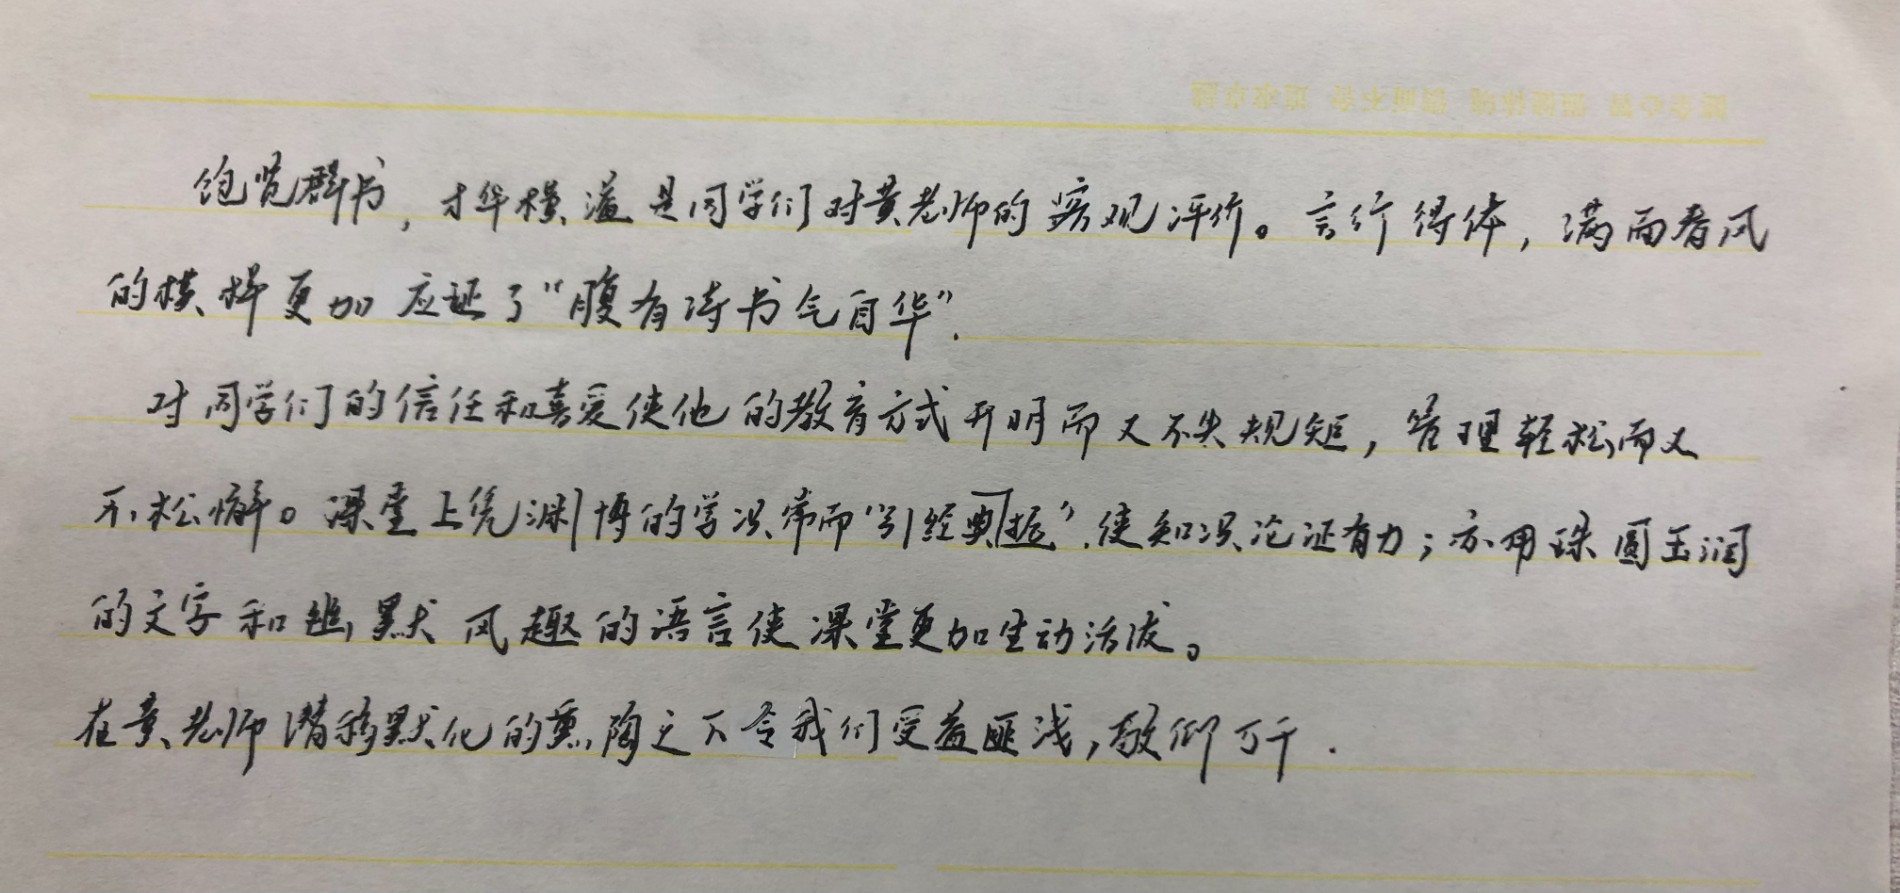 饱览群书，才华横溢是同学们对黄老师的客观评价。言行得体，满面春风
的模样更加应证了“腹有诗书气自华”.
对同学们的信任和喜爱使他的教育方式开明而又不失规矩，管理轻松而又
不松懈。课堂上凭渊博的学识常而“引经典据”,使知识论证有力；亦用珠圆玉润
的文字和幽默风趣的语言使课堂更加生动活泼。
在黄老师潜移默化的熏陶之下令我们受益匪浅，敬仰万千.